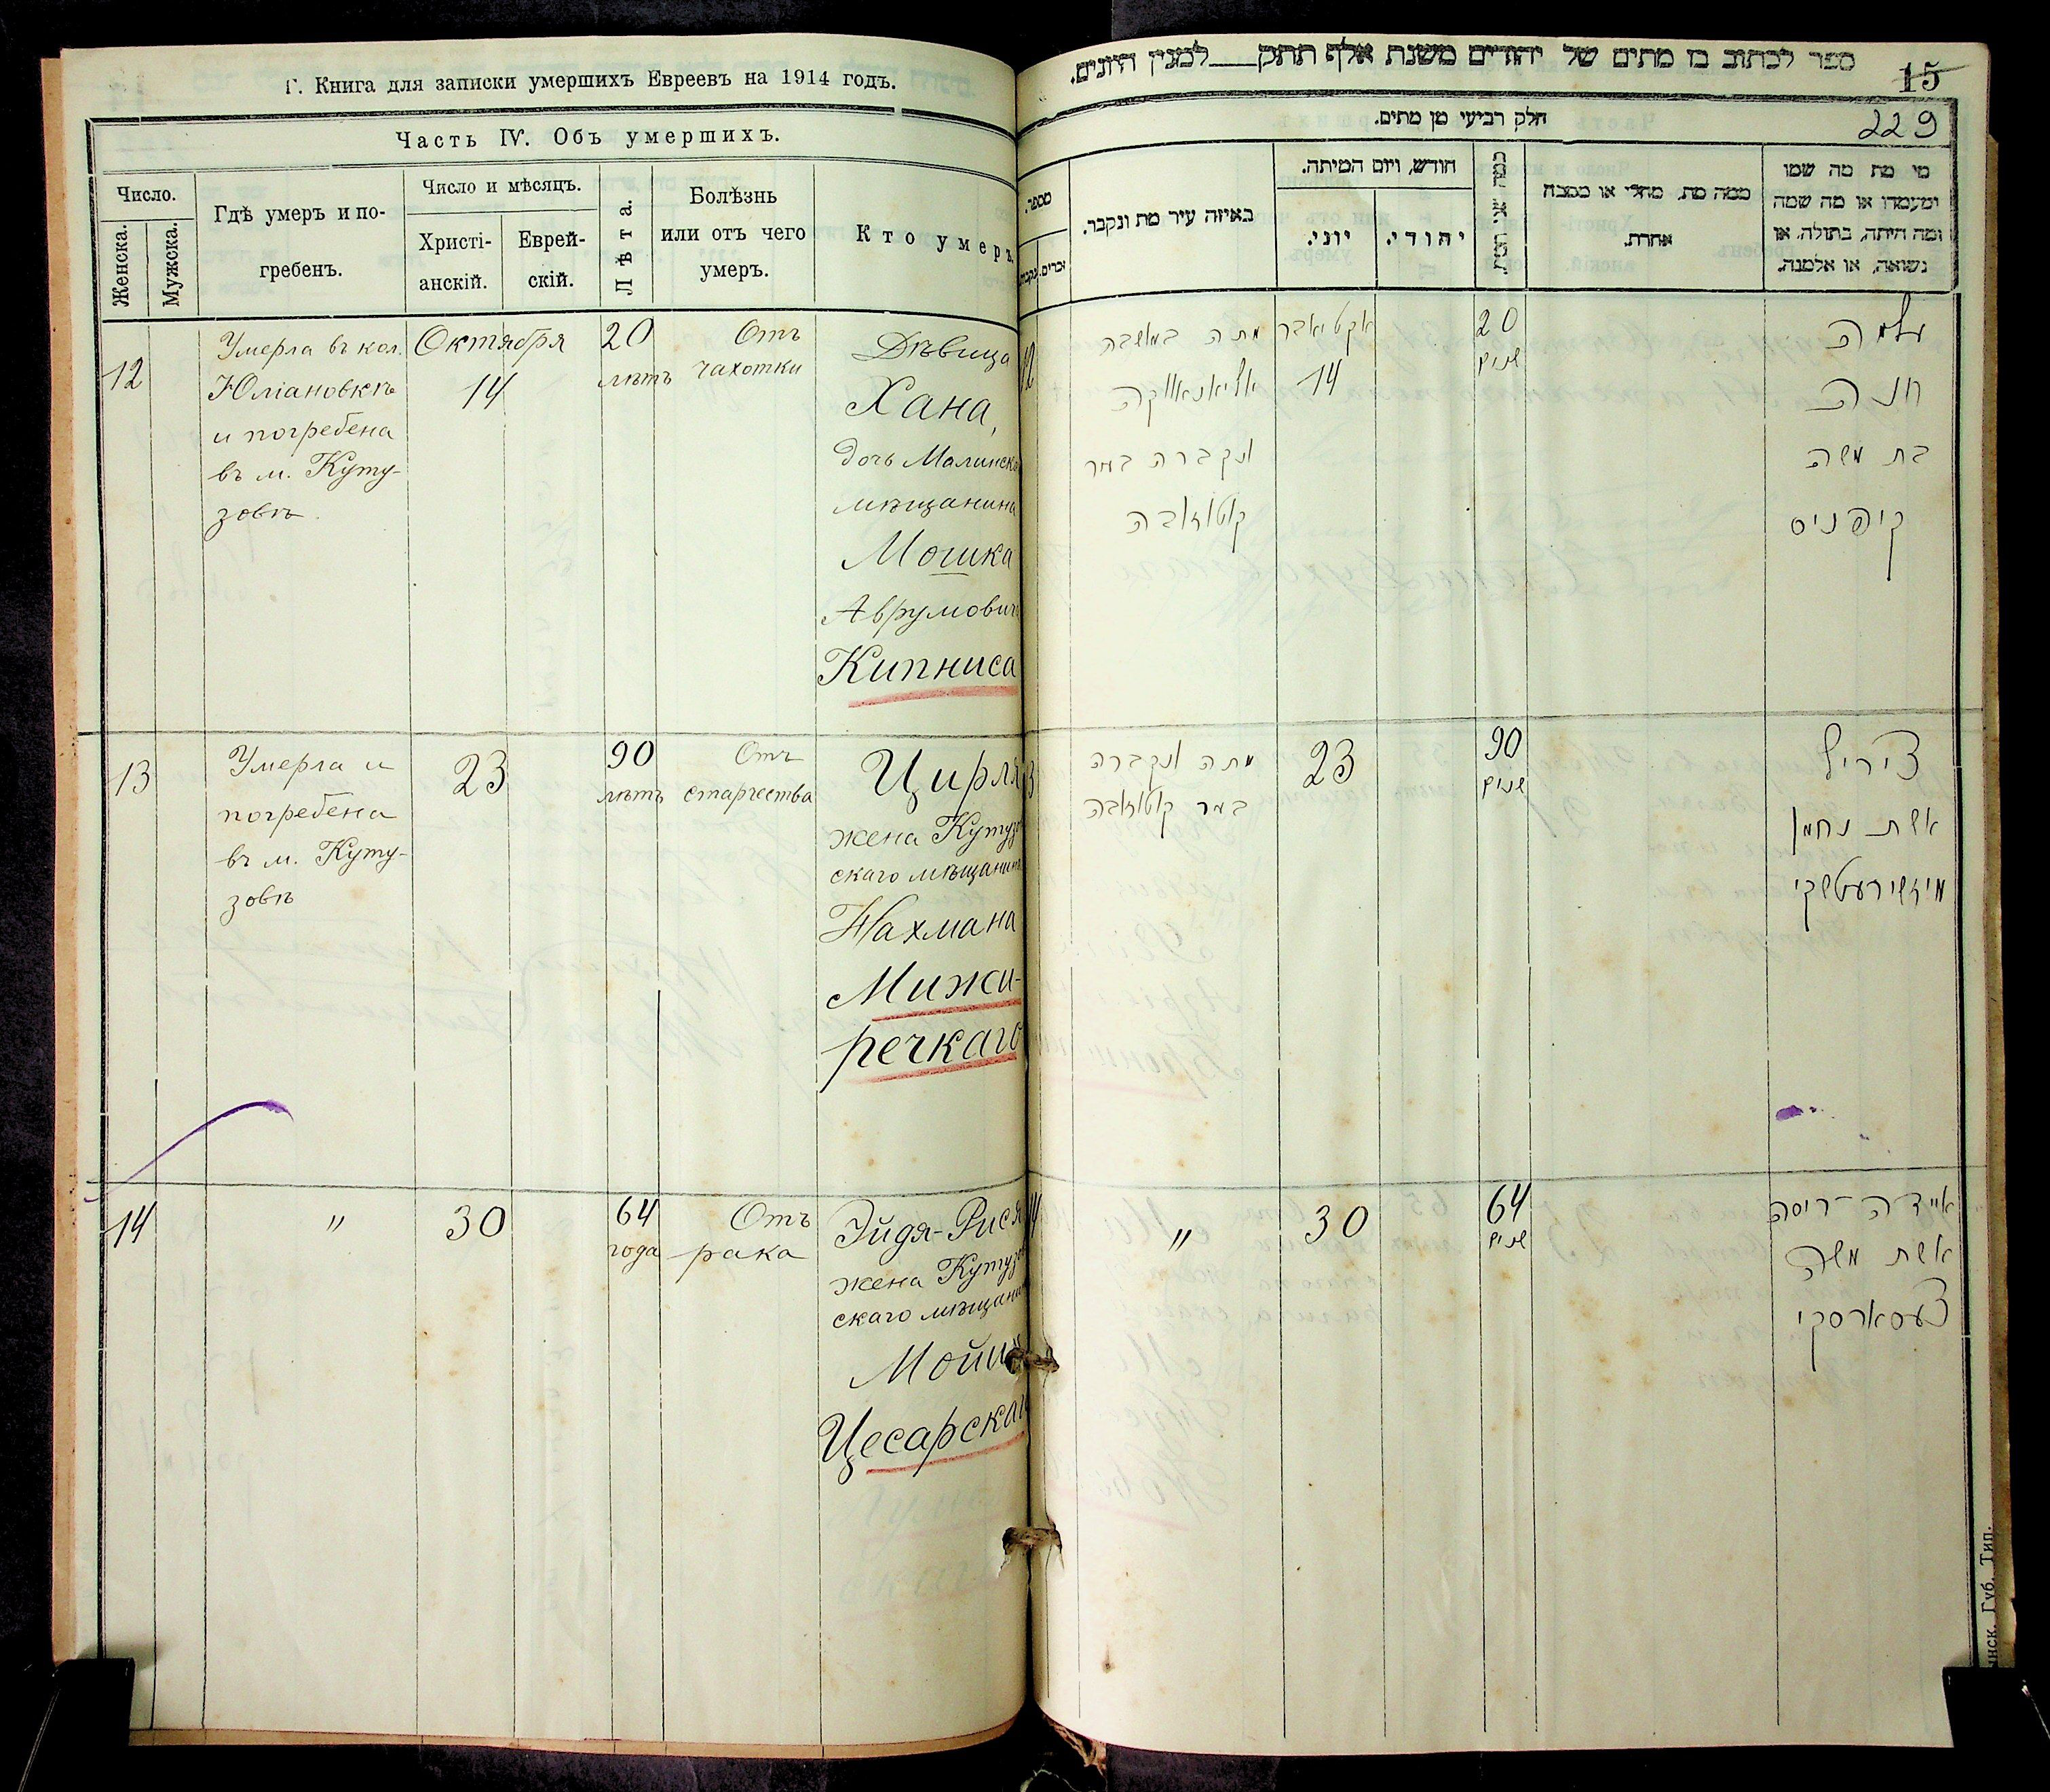 Г. Книга для записки умершихъ Евреевъ на 1914 годъ.
Часть IV. Объ умершихъ.
Число.
Женска.
Мужска.
Гдѣ умеръ и по-
гребенъ.
Число и мѣсяцъ.
Христі-
анскій.
Еврей-
скій.
Лѣта.
Болѣзнь
или отъ чего
умеръ.
Кто умеръ.
12
Умерла въ кол.
Юліановкѣ
и погребена
въ м. Куту-
зовѣ
Октября
14
20
лѣтъ
Отъ
чахотки
Дѣвица
Хана,
дочь Малинска
мѣщанина
Мошка
Аврумович
Кипниса
13
Умерла и
погребена
въ м. Куту-
зовѣ
23
90
лѣтъ
Отъ
старчества
Цирля
жена Кутузо
скаго мѣщанина
Нахмана
Мижи-
речкаго
14
"
30
64
года
Отъ
рака
Эйдя-Рися
жена Кутузо
скаго мѣщани
Цесарскаг
ספר לכתוב בו מתים של יהודים משנת אלף תתק למנין היונים.
15
229
חלק רביעי מן מתים.
מספר.
זכרים.
באיזה עיר מת ונקבר.
חודש, ויום המיתה.
יוני.
יהודי.
ממה מת, מחלי או מסבה
אחרת.
מי מת מה שמו
ומעמדו או מה שמה
ומה היתה, בתולה, או
נשואה, או אלמנה.
12
מתה במאשבה
אוליאנאווקה
ונקברה במר
קוטוזאבה
אקטיאבר
14
20
שנים
עלמה
חנה
בת משה
קיפניס
13
מתה ונקברה
במר קוטוזאבה
23
90
שנים
ציריל
אשת נחמן
מיזשירעטשקי
14
"
30
64
שנים
איידה-ריסה
אשת משה
צעסארסקי
Губ. Тип.